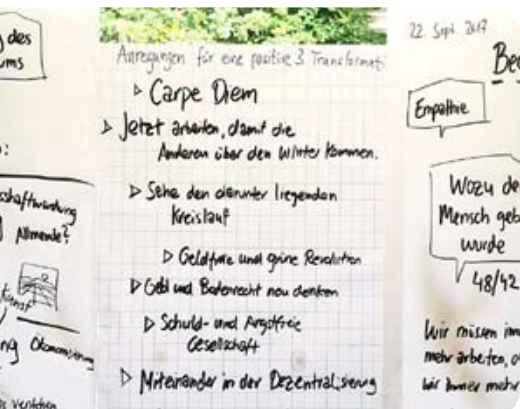 des
ums
:
Allmende?
Anregungen für eine positive Transformati
Carpe Diem
Jetzt arbeiten, damit die
Anderen über den Winter kommen.
Sehe den darunter liegenden
Kreislauf
Geldfreie und grüne Revolution
Geld und Bodenrecht neu denken
Schuld- und Angstfreie
Gesellschaft
Miteinander in der Dezentralisierung
22. Sept. 2017
Be
Empathie
Wozu de
Mensch geb
wurde
48/42
Wir müssen imm
mehr arbeiten, o
wir immer mehr